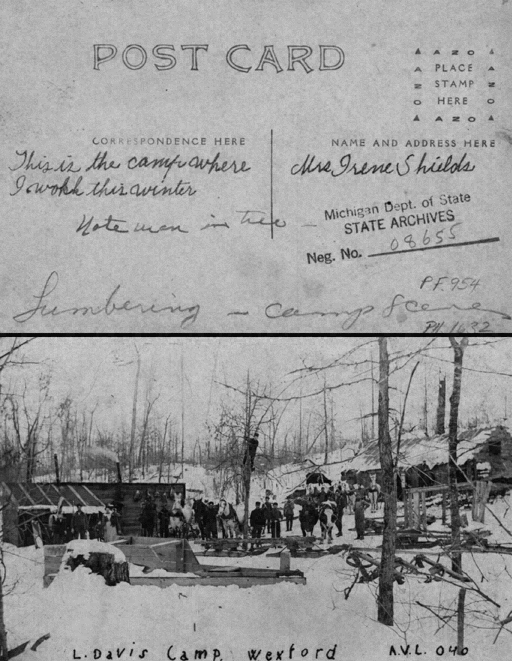 POST CARD
AZO
PLACE
STAMP
HERE
AZO
CORRESPONDENCE HERE
NAME AND ADDRESS HERE
This is the camp where
I wokh this winter
Mrs Irene Shields
Note man in tree —
Michigan Dept. of State
STATE ARCHIVES
Neg. No. 08655
P.F. 954
Lumbering — Camp Scenes
PH. 1632
L. Davis Camp. Wexford A.V.L. 040